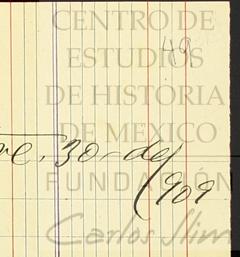 CENTRO DE
49
ESTUDIOS
DE HISTORIA
DE MEXICO
re. 30 - de
FUNDACIÓN
1909
Carlos Slim